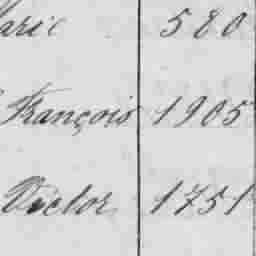 Marie 580
François 1905
Victor 1751